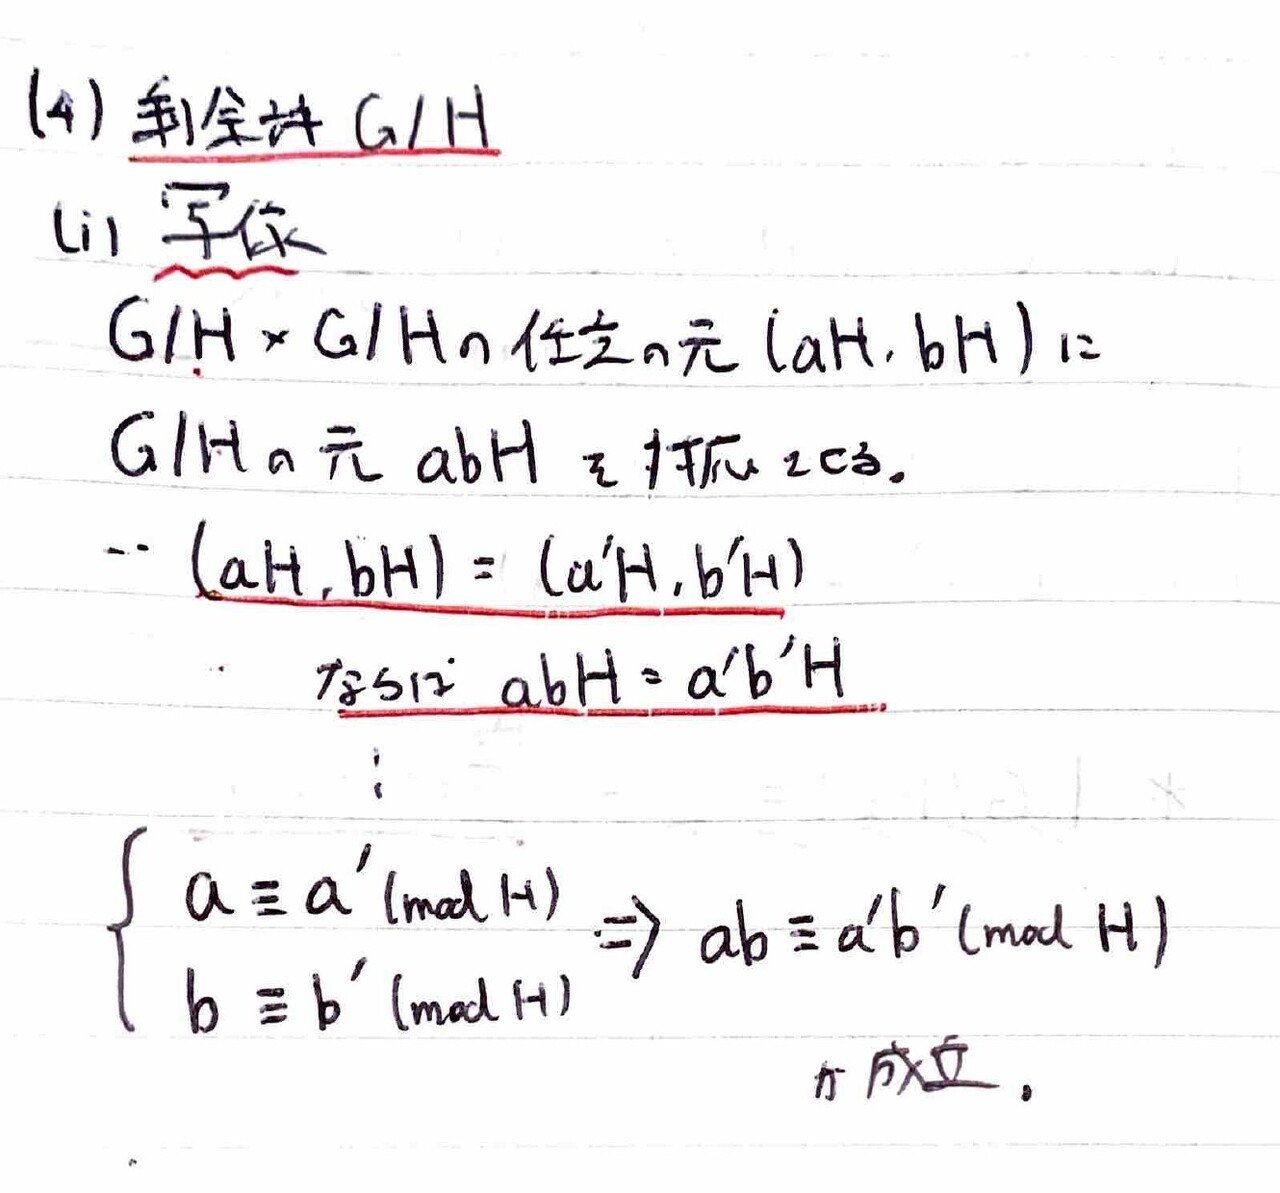 (4) 剰余群 G/H
(i) 写像
G/H × G/Hの任意の元 (aH, bH) に
G/Hの元 abH を対応させる。
∵ (aH, bH) = (a'H, b'H)
ならば abH = a'b'H
⋮
{ a ≡ a' (mod H) ⇒ ab ≡ a'b' (mod H)
b ≡ b' (mod H)
が成立.